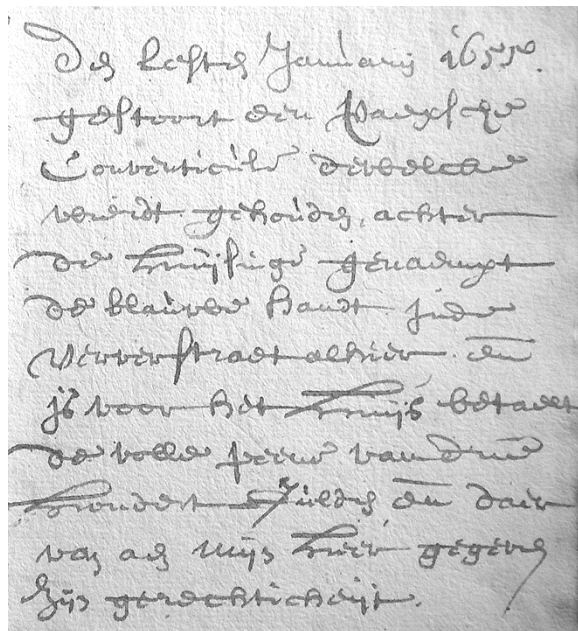 Den lesten Januarij 1655.
gestoort een Paepsche
Conventicule dewelcke
wierdt gehouden, achter
de huijsinge genaempt
de blauwe handt inde
Ververstraet alhier. ende
is voor het huijs betaelt
de volle peene van drie
hondert Gulden ende dair
van aen mijn heer gegeven
zijn gerechticheijt.